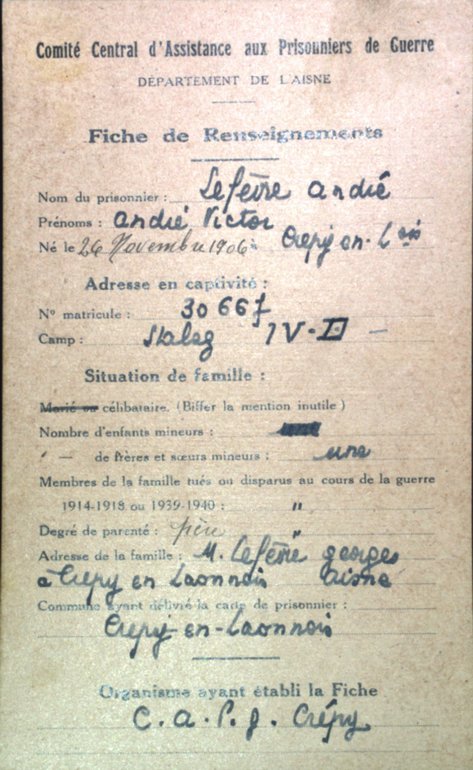 Comité Central d'Assistance aux Prisonniers de Guerre
DÉPARTEMENT DE L'AISNE
Fiche de Renseignements
Nom du prisonnier : Lefèvre André
Prénoms : André Victor
Né le 26 Novembre 1906 à Crépy en-Lois
Adresse en captivité :
N° matricule : 30667
Camp : Stalag IV-D -
Situation de famille :
Marié ou célibataire. (Biffer la mention inutile)
Nombre d'enfants mineurs :
- de frères et sœurs mineurs : une
Membres de la famille tués ou disparus au cours de la guerre
1914-1918 ou 1939-1940 : "
Degré de parenté : père "
Adresse de la famille : M. Lefèvre georges
à Crépy en Laonnois Aisne
Commune ayant délivré la carte de prisonnier :
Crépy-en-Laonnois
Organisme ayant établi la Fiche
C.A.P.g. Crépy